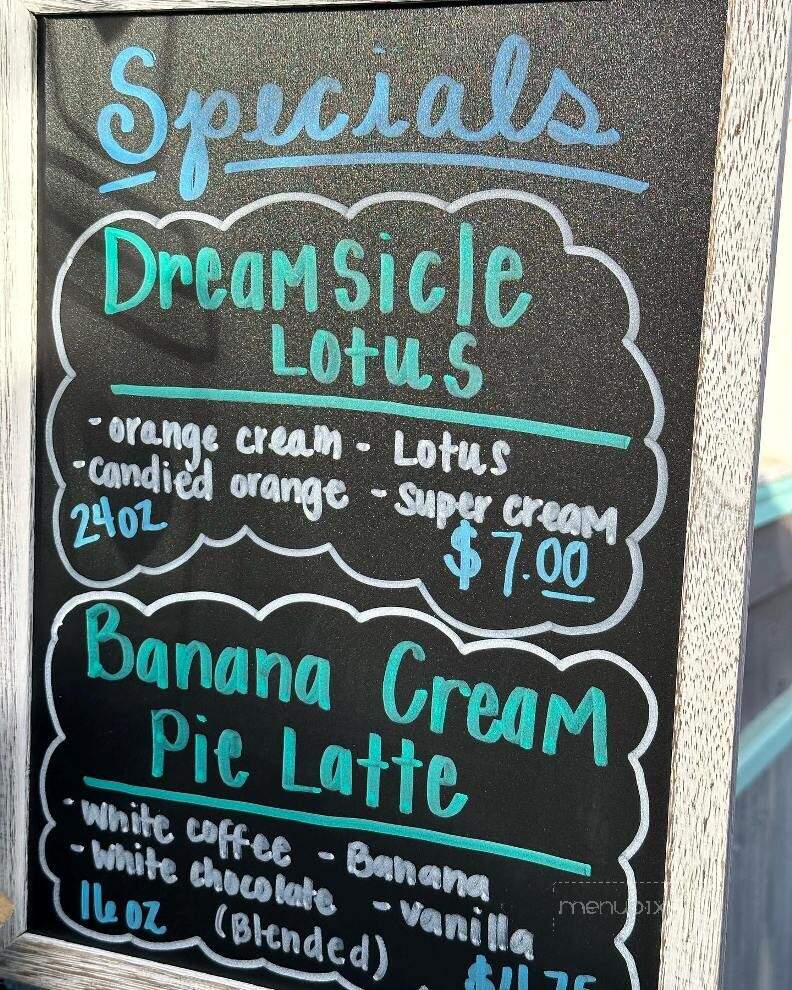 Specials
Dreamsicle
Lotus
- orange cream - Lotus
- candied orange - super cream
24oz
$7.00
Banana Cream
Pie Latte
- white coffee - Banana
- White chocolate - vanilla
16oz (Blended)